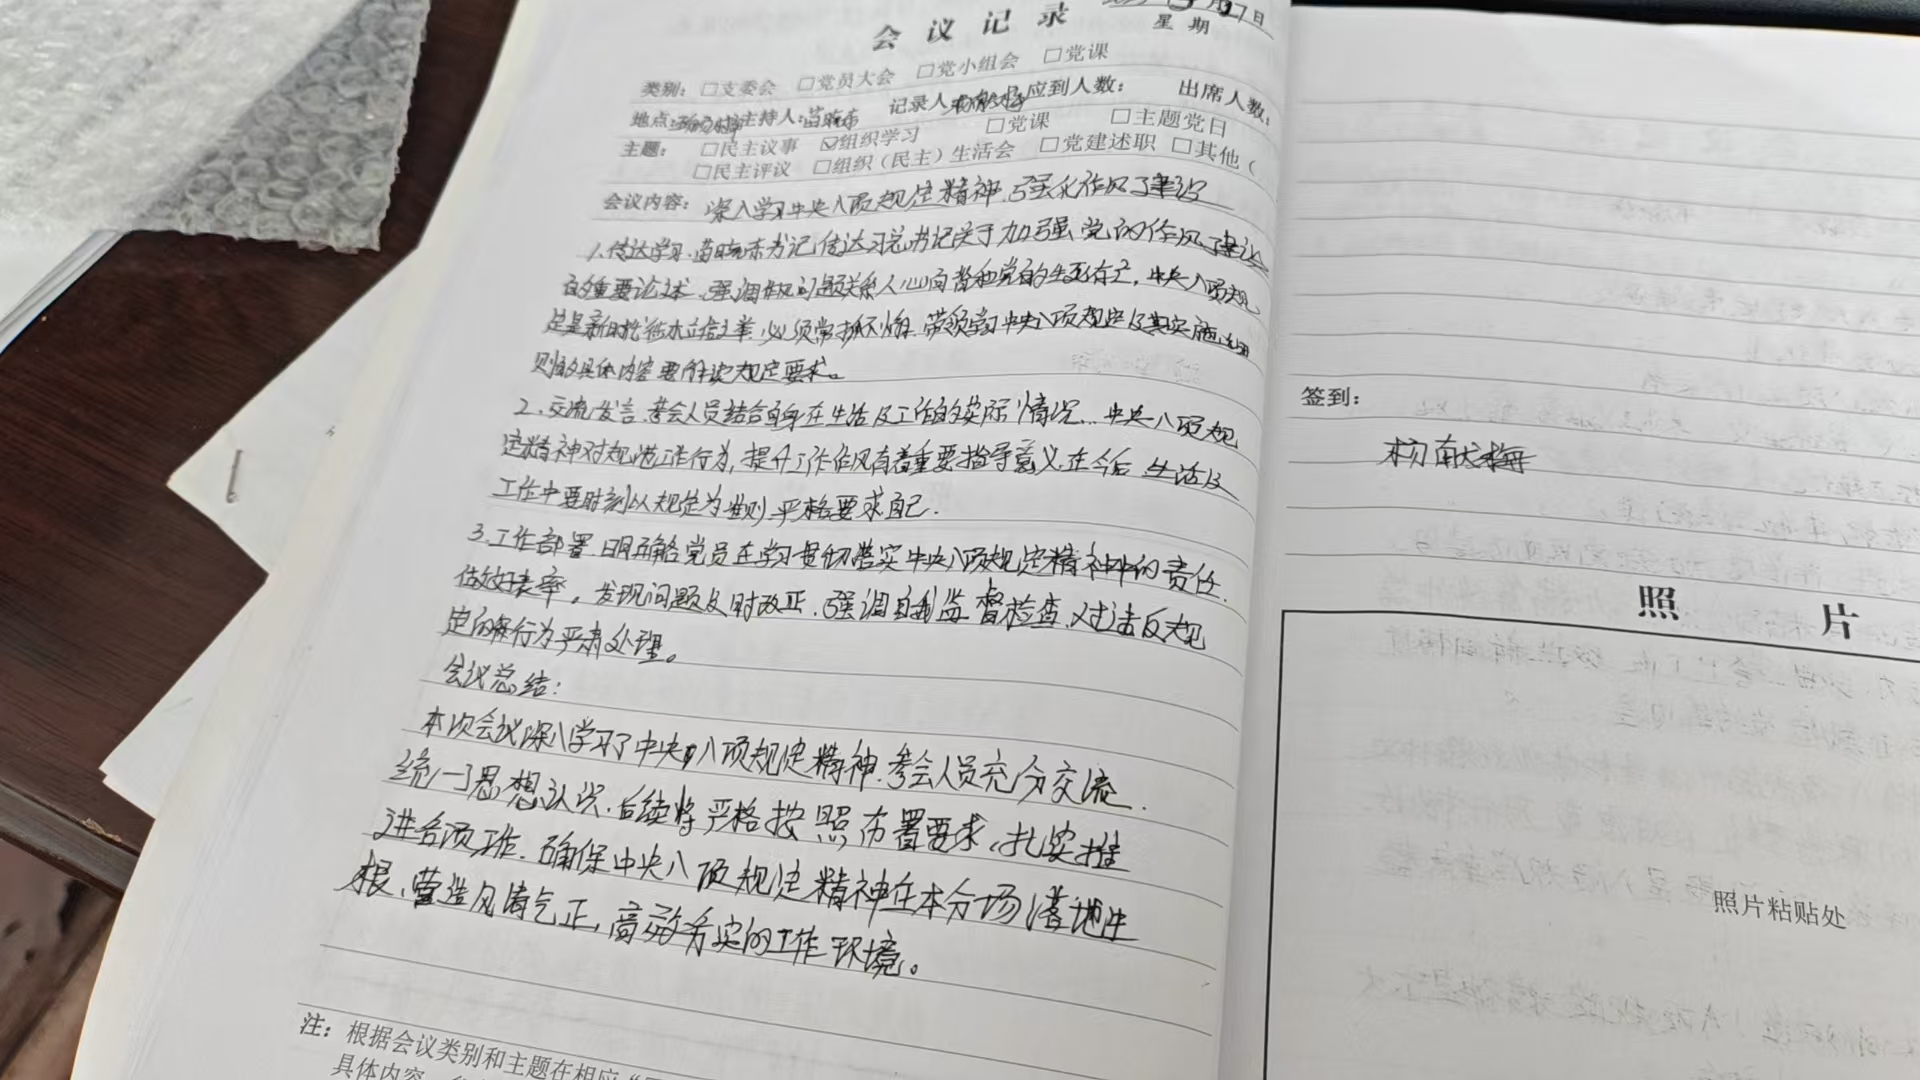 会议记录
月27日
星期
类别：□支委会 □党员大会 □党小组会 □党课
地点： 主持人：苗晓东 记录人 应到人数： 出席人数：
主题： □民主议事 ☑组织学习 □党课 □主题党日
□民主评议 □组织（民主）生活会 □党建述职 □其他（
会议内容： 深入学习中央八项规定精神，强化作风建设
1、传达学习，苗晓东书记传达习总书记关于加强党的作风建设
的重要论述，强调作风问题关系人心向背和党的生死存亡，中央八项规
定是新时代 立信之举，必须常抓不懈，带领学习中央八项规定及其实施细
则的具体内容要 解读规定要求。
2、交流发言，参会人员结合自身在生活及工作的实际情况，中央八项规
定精神对规范工作行为，提升工作作风有着重要指导意义，在今后生活及
工作中要时刻以规定为准则，严格要求自己．
3、工作部署，明确各党员在学习贯彻落实中央八项规定精神中的责任，
做好表率，发现问题及时改正，强调自我监督检查，对违反规
定的 行为严肃处理。
会议总结：
本次会议深入学习了中央八项规定精神，参会人员充分交流，
统一了思想认识，后续将严格按照布署要求，扎实推
进各项工作，确保中央八项规定精神在本分场落地生
根、营造风清气正，高效务实的工作环境。
注：根据会议类别和主题在相应“
具体内容，
签到：
杨献梅
照片
照片粘贴处